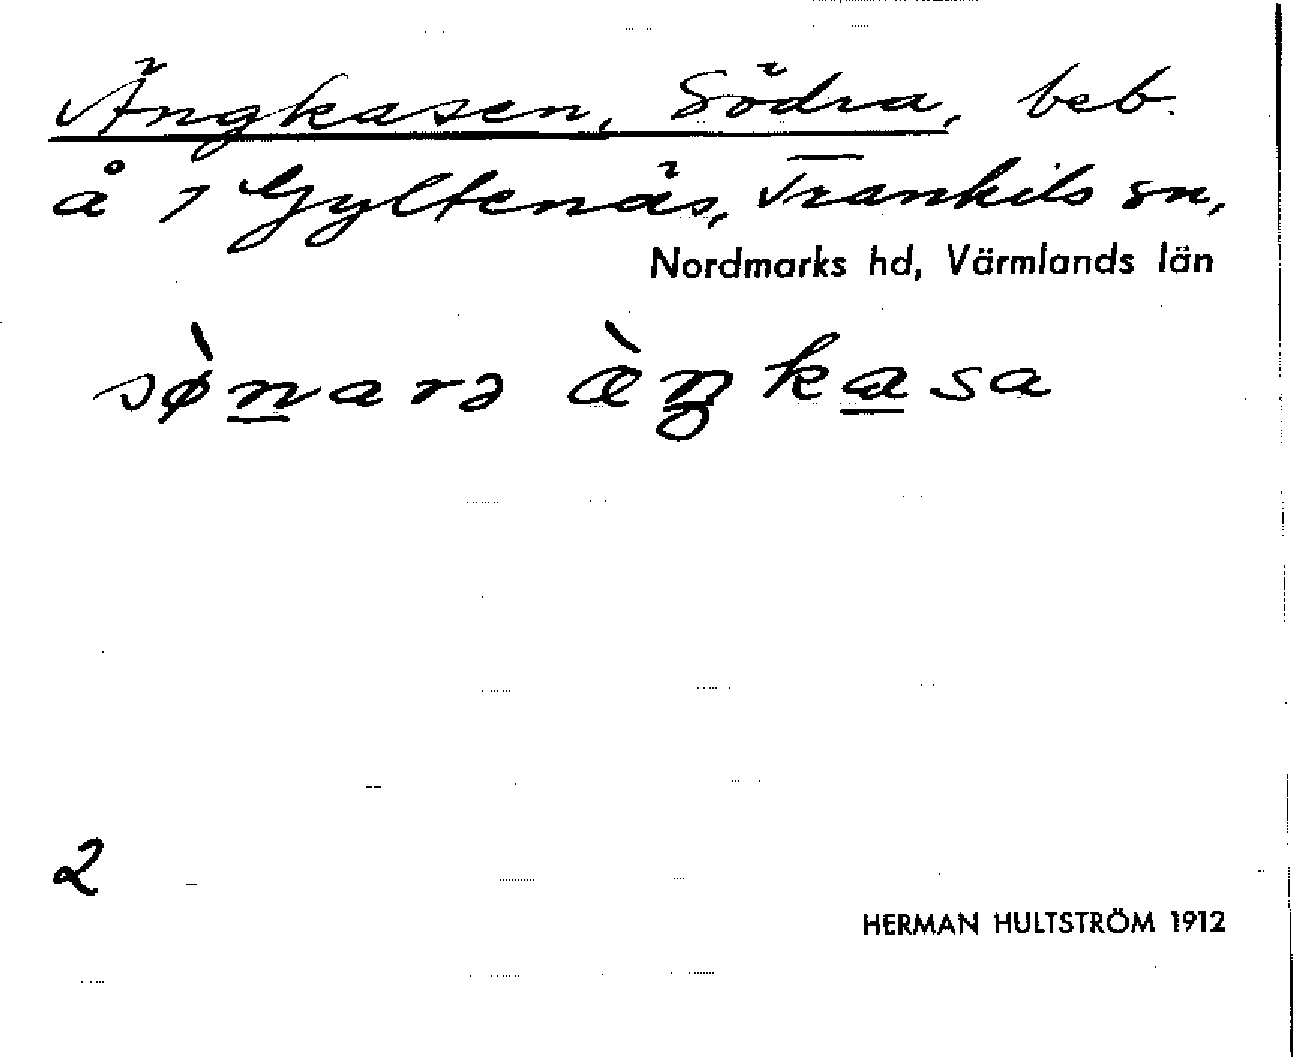 Ängkasen, Södra, beb.
å 1 Gyltenäs, Trankils sn,
Nordmarks hd, Värmlands län
sø̀narə æ̀ŋkasa
2
HERMAN HULTSTRÖM 1912